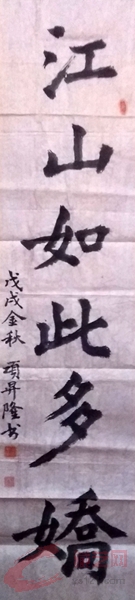 江山如此多嬌
戊戌金秋 項昇隆书